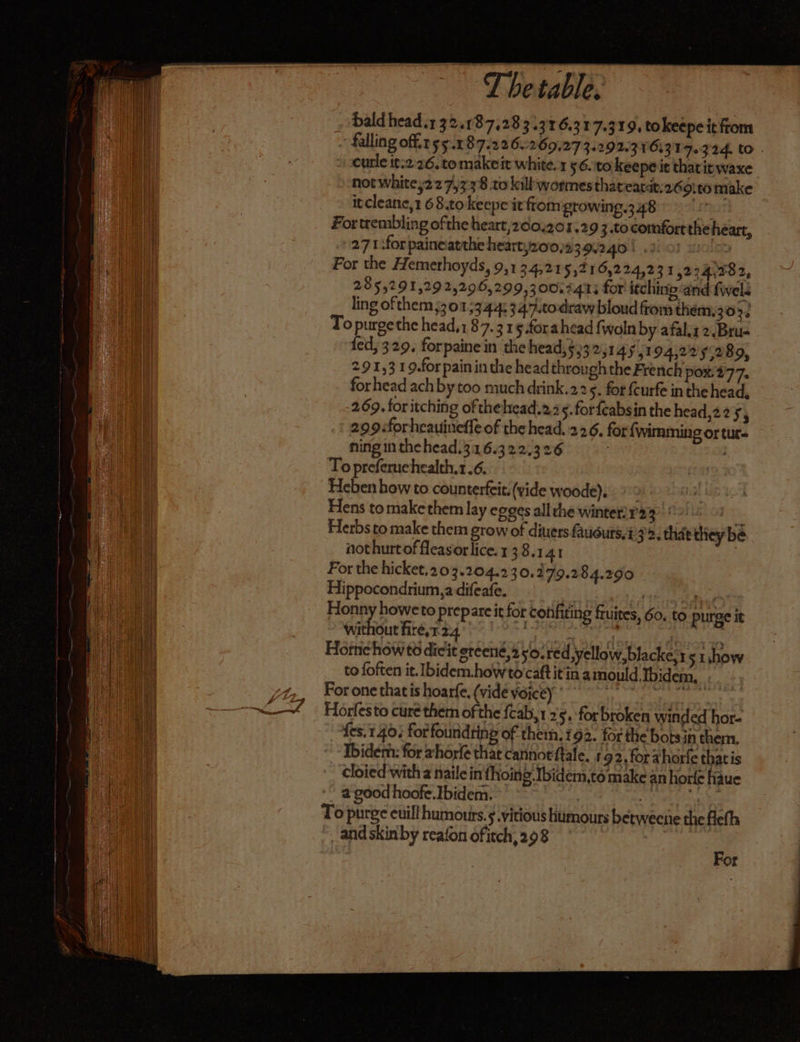 The table.
bald head. 132.187.283.316.317.319. to keepe it from
falling off. 155.187.226.269.273.292.316.317.324. to
curle it: 226. to make it white. 156. to keepe it that it waxe
not white, 227, 338 to kill wormes that eat it. 269. to make
it cleane, 168. to keepe it from growing. 348
For trembling of the heart, 200.201.293. to comfort the heart,
271. for paine at the heart, 200, 239, 240
For the Hemerhoyds, 9, 134, 215, 216, 224, 231, 234, 282,
285, 291, 292, 296, 299, 300. 341. for itching and swel-
ling of them, 301, 344. 347. to draw bloud from them, 303.
To purge the head, 187. 315. for a head swoln by a fal, 12. Bru-
sed, 329. for paine in the head, 5, 32, 145, 194, 225, 289,
291, 319. for pain in the head through the French pox. 277.
for head ach by too much drink. 225. for scurfe in the head,
269. for itching of the head. 225. for scabs in the head, 225,
299. for heauinesse of the head. 226. for swimming or tur-
ning in the head. 316. 322. 326
To preserue health. 1. 6.
Heben how to counterfeit. (vide woode).
Hens to make them lay egges all the winter. 123
Herbs to make them grow of diuers sauours, 132. that they be
not hurt of fleas or lice. 138. 141
For the hicket, 203. 204. 230. 279. 284. 290
Hippocondrium, a disease.
Honny howe to prepare it for confiting fruites, 60. to purge it
without fire, 124
Horne how to die it greene, 250. red, yellow, blacke, 151. how
to soften it. Ibidem. how to cast it in a mould. Ibidem.
For one that is hoarse. (vide voice)
Horses to cure them of the scab, 125. for broken winded hor-
ses, 140. for foundring of them, 192. for the bots in them.
Ibidem: for a horse that cannot stale. 192. for a horse that is
cloied with a naile in shoing. Ibidem, to make an horse haue
a good hoofe. Ibidem.
To purge euill humours. 5. vitious humours betweene the flesh
and skin by reason of itch, 298
For